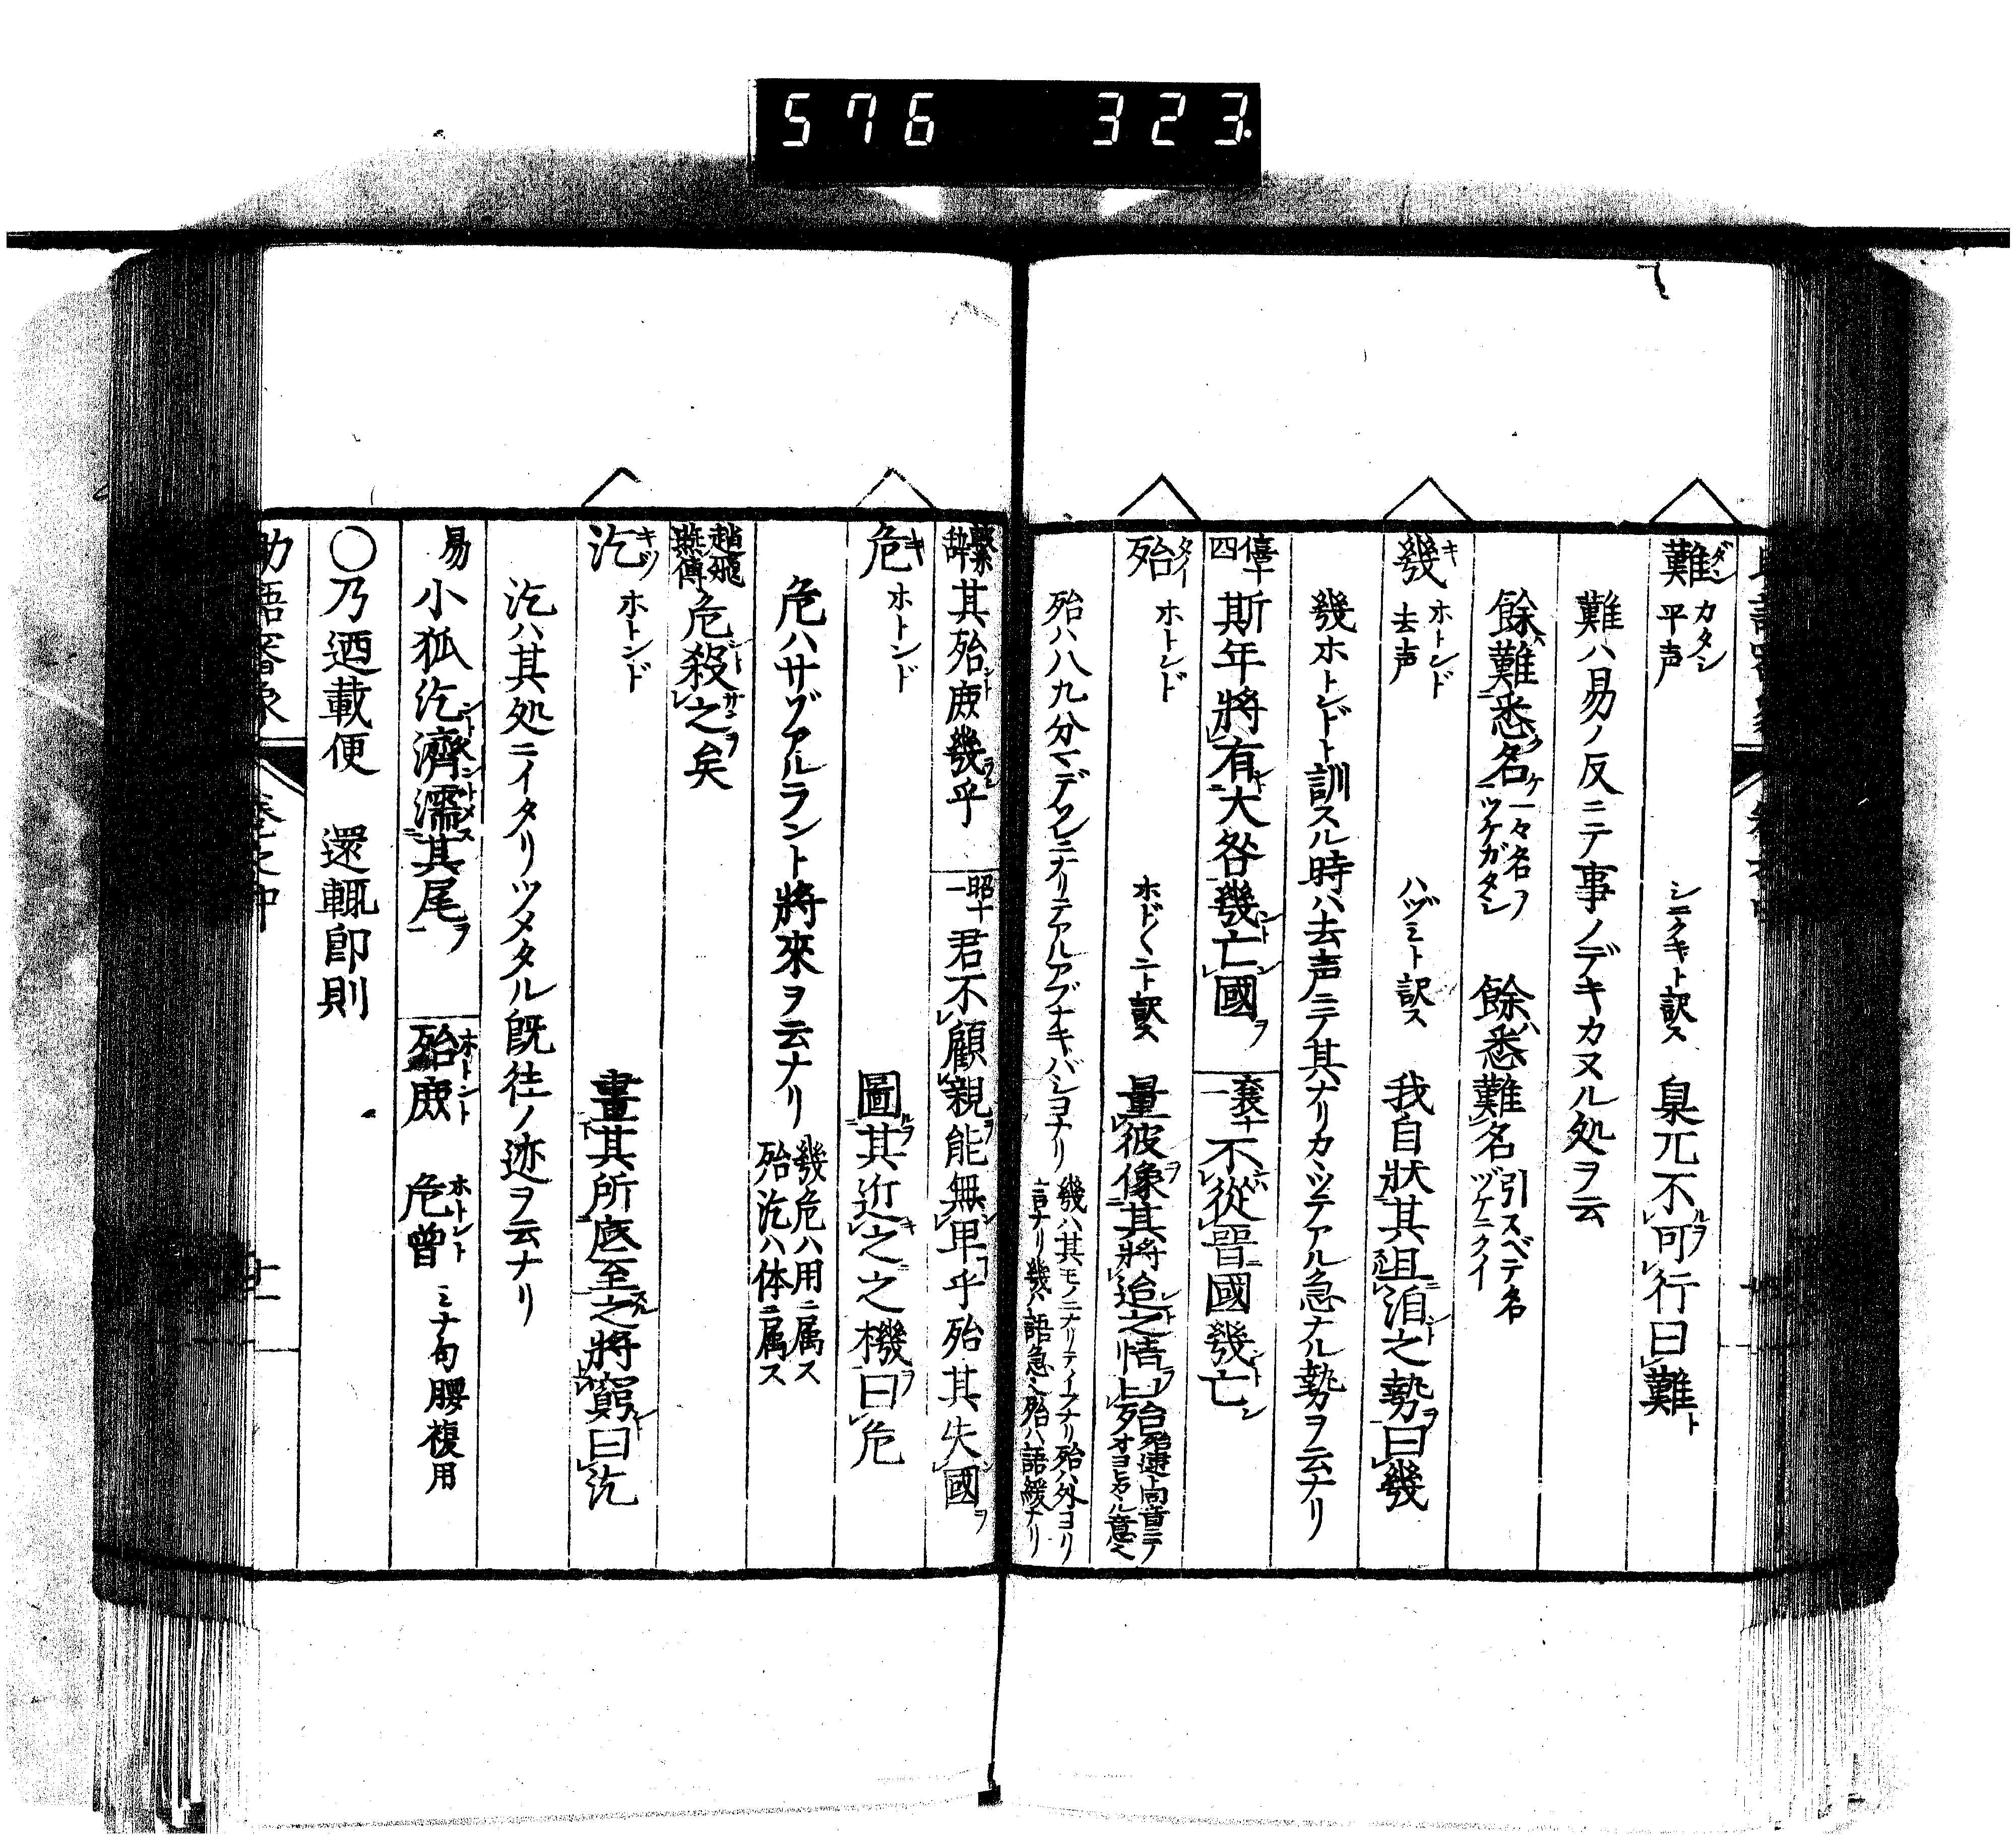 576 323.
難 ダン カタシ 平声 シニクキト訳ス 臬兀不可行曰難
難ハ易ノ反ニテ事ノデキカヌル処ヲ云
餘難悉名 一々名ヲツケガタシ 餘悉難名 引スベテ名ヅケニクイ
幾 キ ホトンド 去声 ハヅミト訳ス 我自狀其沮洎之勢曰幾
幾ホトンドト訓スル時ハ去声ニテ其ナリカヽツテアル急ナル勢ヲ云ナリ
僖十四 斯年將有大咎幾亡國 襄十一 不從晉國幾亡
殆 タイ ホトンド ホド〱ニト訳ス 量彼像其將迨之情曰殆
殆ハ八九分マデクレニナリテアルアブナキバショナリ 幾ハ其モノニナリテイフナリ殆ハ外ヨリ言ナリ幾ノ語急ニ殆ハ語緩ナリ
繫辞 其殆庶幾乎 昭十一 君不顧親能無卑乎殆其失國
危 キ ホトンド 圖其近之之機曰危
危ハサゾアルラント將來ヲ云ナリ 幾危ハ用ニ属ス殆汔ハ体ニ属ス
趙飛燕傳 危殺之矣
汔 キツ ホトンド 畫其所底至之將窮曰汔
汔ハ其処ニイタリツメタル旣往ノ迹ヲ云ナリ
易 小狐汔濟濡其尾 殆庶 ホトント 危曾 ホトント ミナ句腰複用
〇乃迺載便 還輒卽則
助語審象 卷之中